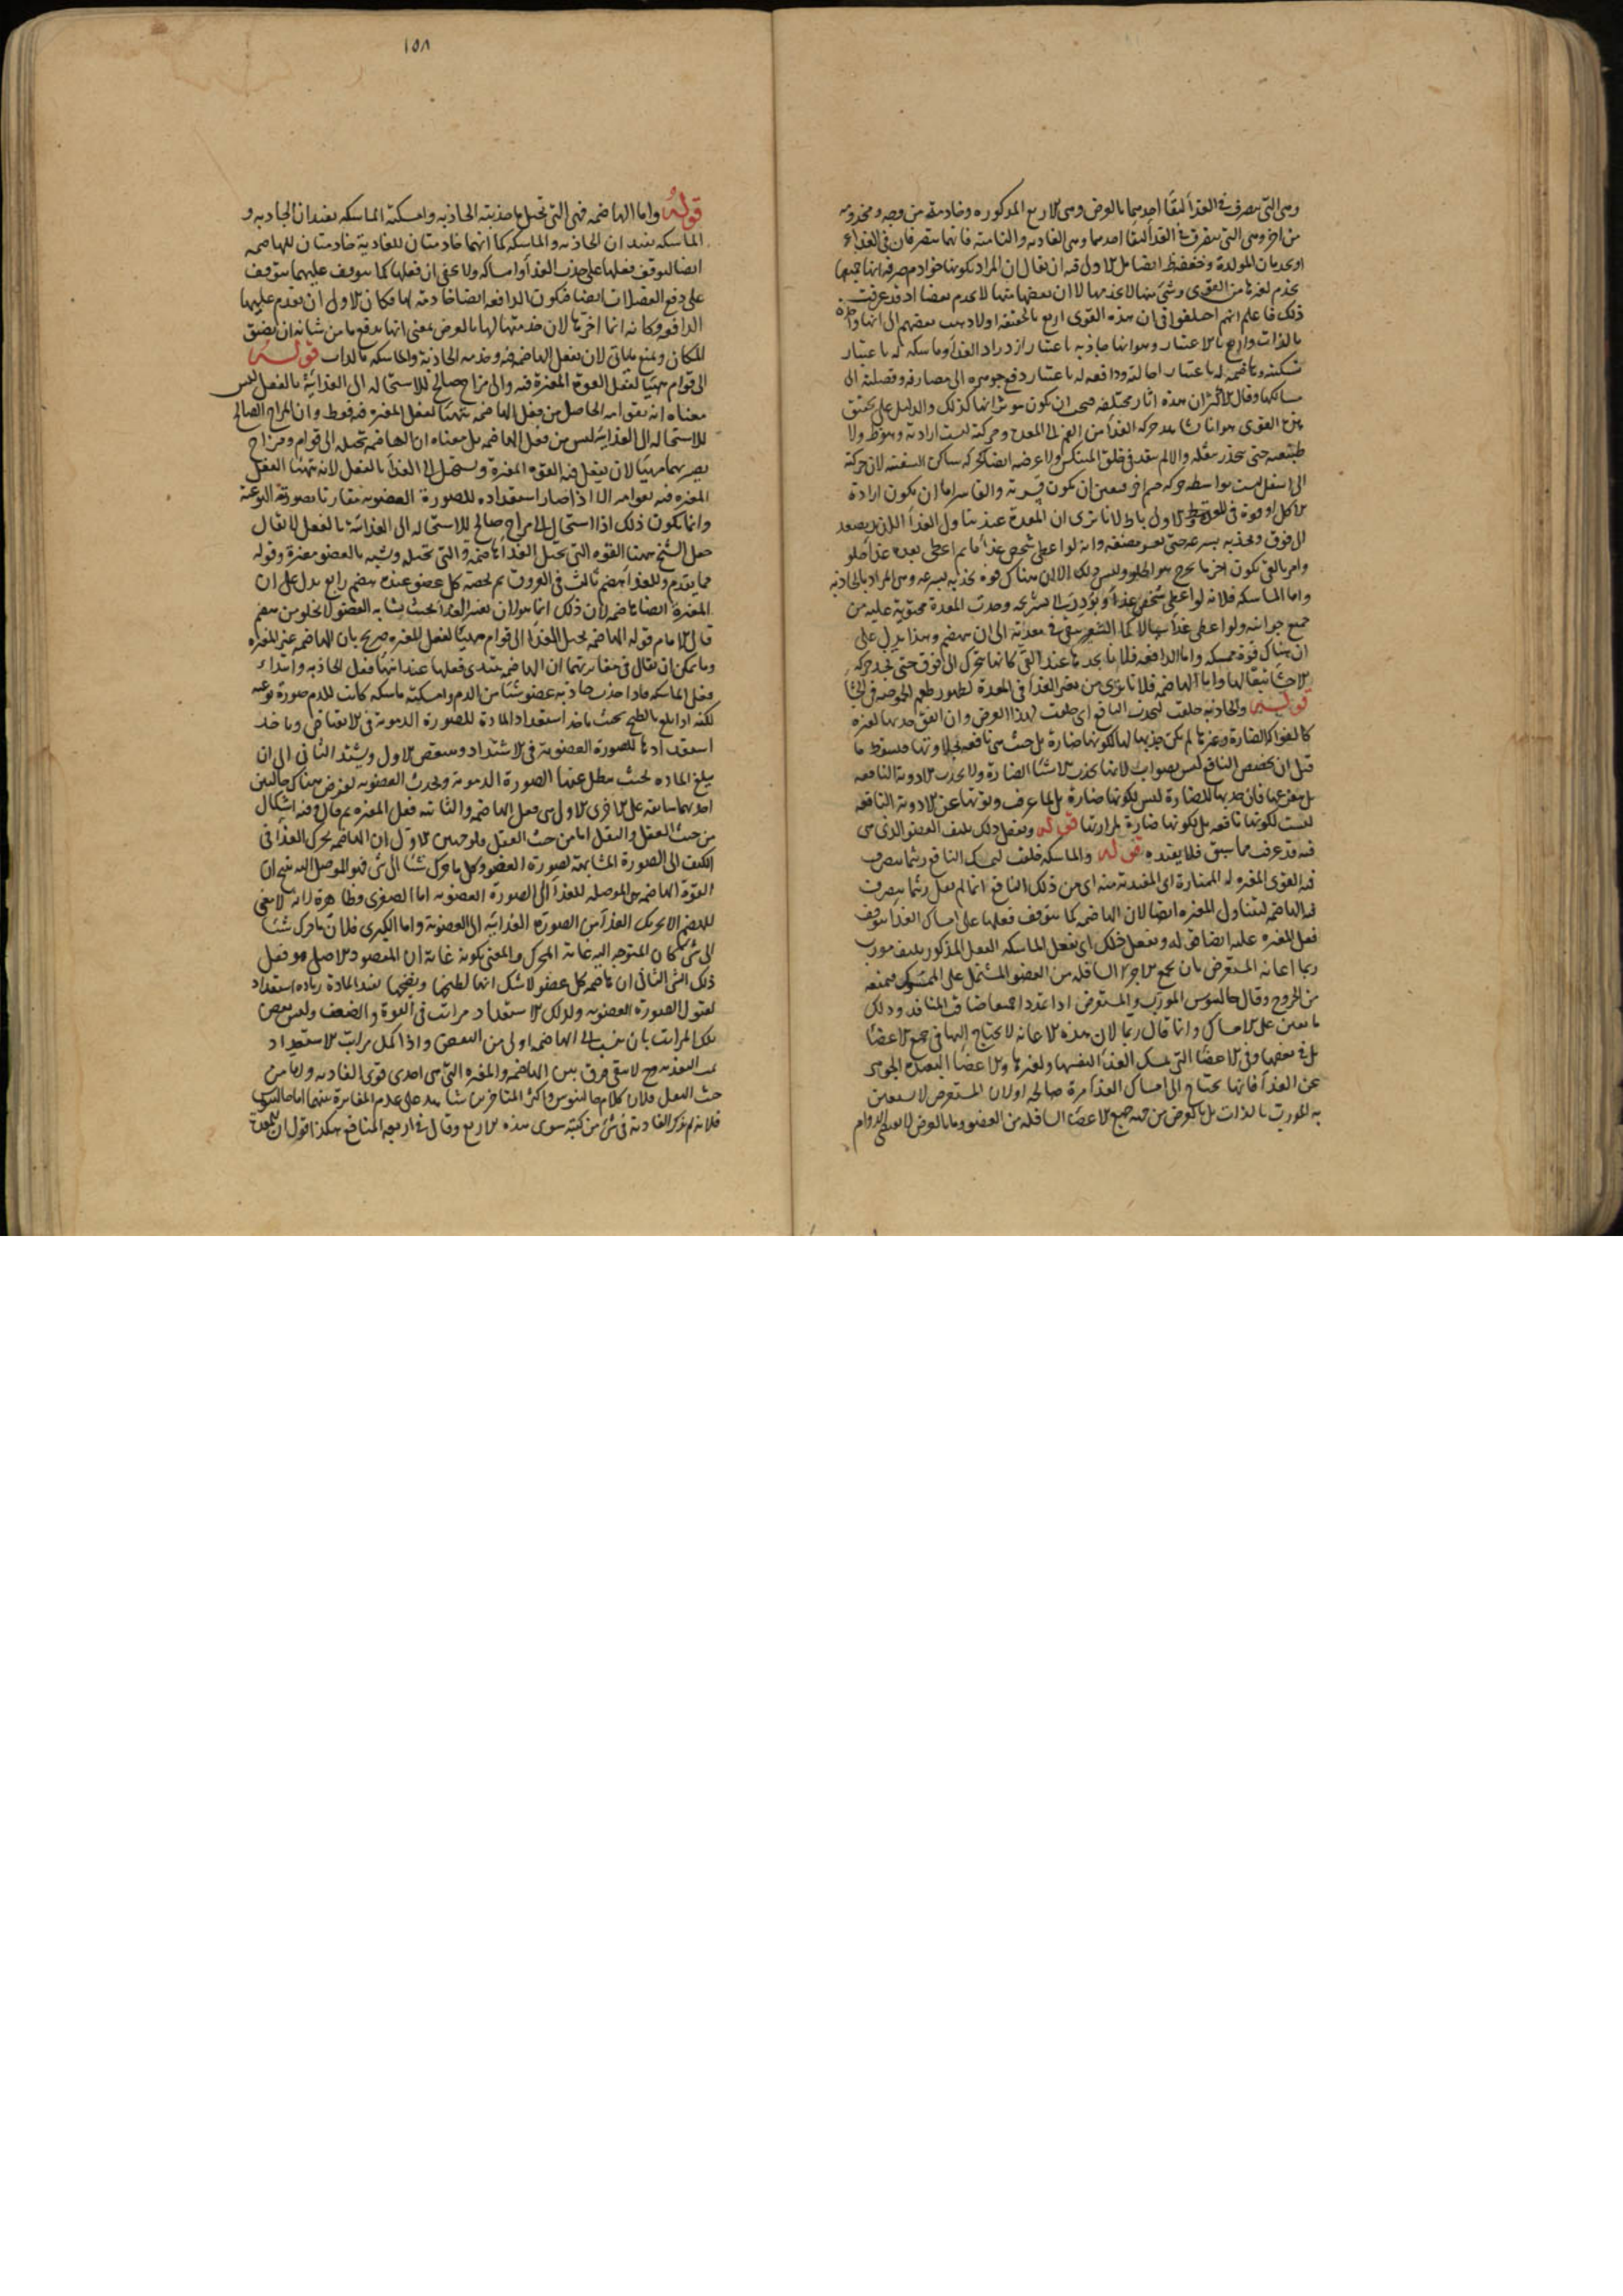 وهي التي تتصرف في الغذاء لبقاء احدهما بالعرض وهي الاربع المذكورة وخادمة من وجه ومخدومة
من اخر وهي التي تتصرف في الغذاء لبقاء احدهما وهي الغاذيه والناميه فانهما تتصرفان في الغذاء
او يخدمان المولدة ايضا بل الاول فيه ان يقال ان المراد بكونها خوادم صرفه انها جميعها
يخدم لغيرها من القوى وشئ منها لا يخدمها لا ان بعضها منها لا يخدم بعضا اذ قد عرفت
ذلك فاعلم انهم اختلفوا في ان هذه القوى اربع بالحقيقه او لا ذهب بعضهم الى انها واحدة
بالذات واربع بالاعتبار وهو انها جاذبه باعتبار ازدراد الغذا وماسكه له باعتبار
تسكينه وهاضمه له باعتبار احالته ودافعه له باعتبار دفع جوهره الى مصارفه وفضلته الى
مسالكها وقال الاكثر ان هذه اثار مختلفه فيجب ان يكون مؤثراتها كذلك والدليل على تحقق
هذه القوى هو انا نشاهد حركه الغذا من الفم الى المعدة وحركته ليست ارادية وهو ظ ولا
طبيعيه حتى ينحدر بثقله والا لم ينفذ في حلق المنتكس ولا عرضيه ايضا كحركه ساكن السفينه لان حركته
الى اسفل ليست بواسطه حركه جسم اخر فتعين ان تكون قسريه والقاسر اما ان يكون ارادة
الاكل او قوة في المعدة والاول باطل لانا نرى ان المعدة عند تناول الغذا اللذيذ يصعد
الى فوق وتجذبه بسرعه حتى تعسر مضغه وانه لو اعطي شخص غذا ما ثم اعطي بعده غذا حلو
وامر بالقئ يكون اخر ما يخرج هو الحلو وليس ذلك الا لان هناك قوة تجذبه بسرعه وهي المراد بالجاذبه
واما الماسكه فلانه لو اعطي شخص غذا وبودر الى تشريحه وجدت المعدة محتوية عليه من
جميع جوانبه ولو اعطي غذا سيالا كماء الشعير يبقى في معدته الى ان ينهضم وهذا يدل على
ان هناك قوة ممسكه واما الدافعه فلانا نجدها عند القئ كانها تتحرك الى فوق حتى نجد حركه
الاحشا تبعا لها واما الهاضمه فلانا نرى من تغير الغذا في المعدة لظهور طعم الحموضه في الجشا
قوله والجاذبه خلقت لتجذب النافع اي خلقت لهذا الغرض وان اتفق جذبها لغيره
كالفواكه الضارة وغيرها لم يكن جذبها لها لكونها ضارة بل من حيث هي نافعه لحلاوتها فسقط ما
قيل ان تخصيص النافع ليس بصواب لانها تجذب الاشيا الضارة ولا تجذب الادويه النافعه
بل تنفر عنها فان جذبها للضارة ليس لكونها ضارة بل لما عرف ونفرتها عن الادويه النافعه
ليست لكونها نافعه بل لكونها ضارة لمرارتها قوله وتفعل ذلك بليف العضو الذي هي
فيه قد عرفت مما سبق فلا نعيده قوله والماسكه خلقت لتمسك النافع ريثما تتصرف
فيه القوى المغيره له الممتازة اي المغيدة منه اي من ذلك النافع انما لم يقل ريثما يتصرف
فيه الهاضمه ليتناول المغيره ايضا لان الهاضمه كما يتوقف فعلها على امساك الغذا يتوقف
فعل المغيره عليه ايضا قوله وتفعل ذلك اي تفعل الماسكه الفعل المذكور بليف مورب
ربما اعانه المستعرض بان يجمع الاجزا السافله من العضو المشتمل على الممسوك فيمنعه
من الخروج وقال جالينوس المورب والمستعرض اذا تمددا جميعا ضاقت المنافذ وذلك
ما يعين على الامساك وانما قال ربما لان هذه الاعانه لا يحتاج اليها في جميع الاعضا
بل في بعضها وفي الاعضا التي تمسك الغذا لنفسها ولغيرها والاعضا البعيدة الجوهر
عن الغذا فانها تحتاج الى امساك الغذا مرة صالحه اولان المستعرض لا يستعين
به المورب بالذات بل بالعرض من جهه جمع الاعضا السافله من العضو وما بالعرض لا يعطي الدوام
١٥٨
قوله واما الهاضمه فهي التي تحيل ما جذبته الجاذبه وامسكته الماسكه يفيد ان الجاذبه و
الماسكه يفيد ان الجاذبه والماسكه كما انهما خادمتان للغاذية خادمتان للهاضمه
ايضا لتوقف فعلها على جذب الغذا وامساكه ولا يخفى ان فعلها كما يتوقف عليهما يتوقف
على دفع الفضلات ايضا فتكون الدافعه ايضا خادمه لها فكان الاولى ان يقدم عليها
الدافعه وكانه انما اخرها لان خدمتها لها بالعرض بمعنى انها تدفع ما من شانه ان يضيق
المكان ويمنع ما ياتي لان تفعل الهاضمه فيه وخدمه الجاذبة والماسكه بالذات قوله
الى قوام مهيا لفعل القوة المغيرة فيه والى مزاج صالح للاستحاله الى الغذائية بالفعل ليس
معناه انه بقوامه الحاصل من فعل الهاضمه يتهيا لفعل المغيره فيه فقط وان المزاج الصالح
للاستحاله الى الغذائيه ليس من فعل الهاضمه بل معناه ان الهاضمه تحيله الى قوام ومزاج
يصير بهما مهيا لان يفعل فيه القوه المغيرة ويستحيل الى الغذا بالفعل لانه يتهيا لفعل
المغيره فيه بقوامه اذا صار استعداده للصورة العضويه مقارنا بصورته النوعية
وانما يكون ذلك اذا استحال الى مزاج صالح للاستحاله الى الغذائيه بالفعل لا يقال
جعل الشيخ ههنا القوه التي تحيل الغذا هاضمه والتي تحيله وتشبه بالعضو مغيرة وقوله
فيما تقدم وللغذا هضم ثالث في العروق ثم لحصه كل عضو عنده هضم رابع يدل على ان
المغيرة ايضا هاضمه لان ذلك انما هو لان تغير الغذا بحيث يشابه العضو لا يخلو من هضم
قال الامام قوله الهاضمه تحيل الغذا الى قوام مهيا لفعل المغيره صريح بان الهاضمه غير المغيره
وما يمكن ان يقال في مغايرتهما ان الهاضمه يبتدي فعلها عند انتها فعل الجاذبه وابتداء
فعل الماسكه فاذا جذب جاذبه عضو شيئا من الدم وامسكته ماسكه كانت للدم صورة نوعيه
لكنه اذا بلغ بالطبخ بحيث ياخذ استعداد المادة للصورة الدموية في الانتقاص وياخذ
استعدادها للصورة العضوية في الاشتداد وينتقص الاول ويشتد الثاني الى ان
يبلغ الماده بحيث يبطل عنها الصورة الدموية وتحدث العضويه لغرض هناك حالتين
احديهما سابقه على الاخرى الاولى هي فعل الهاضمه والثانيه فعل المغيره ثم قال وفيه اشكال
من حيث العقل والنقل اما من حيث العقل فلوجهين الاول ان الهاضمه تحرك الغذا في
الكيف الى الصورة المشابهة لصورة العضو وكل ما حرك شيئا الى شئ فهو الموصل اليه ينتج ان
القوة الهاضمه هي الموصله للغذا الى الصورة العضويه اما الصغرى فظاهرة لانه لا معنى
للهضم الا تحريك الغذا من الصورة الغذائيه الى العضوية واما الكبرى فلان ما حرك شيئا
الى شئ كان المتوجه اليه غاية المحرك والمعنى بكونه غاية ان المقصود الاصل هو فعل
ذلك الشئ الثاني ان هاضمه كل عضو لا شك انها لطبخها ونضجها يفيد المادة زيادة استعداد
لقبول الصورة العضويه ولذلك الاستعداد مراتب في القوة والضعف وليس بعض
تلك المراتب بان ينسب الى الهاضمه اولى من البعض واذا كمل مراتب الاستعداد
تمت التغذيه وح لا يبقى فرق بين الهاضمه والمغيره التي هي احدى قوى الغاذيه واما من
حيث النقل فلان كلام جالينوس واكثر المتاخرين شاهد على عدم المغايرة بينهما اما جالينوس
فلانه لم يذكر الغاذية في شئ من كتبه سوى هذه الاربع وقال في اربعه المنافع هكذا اقول ان للمعدة